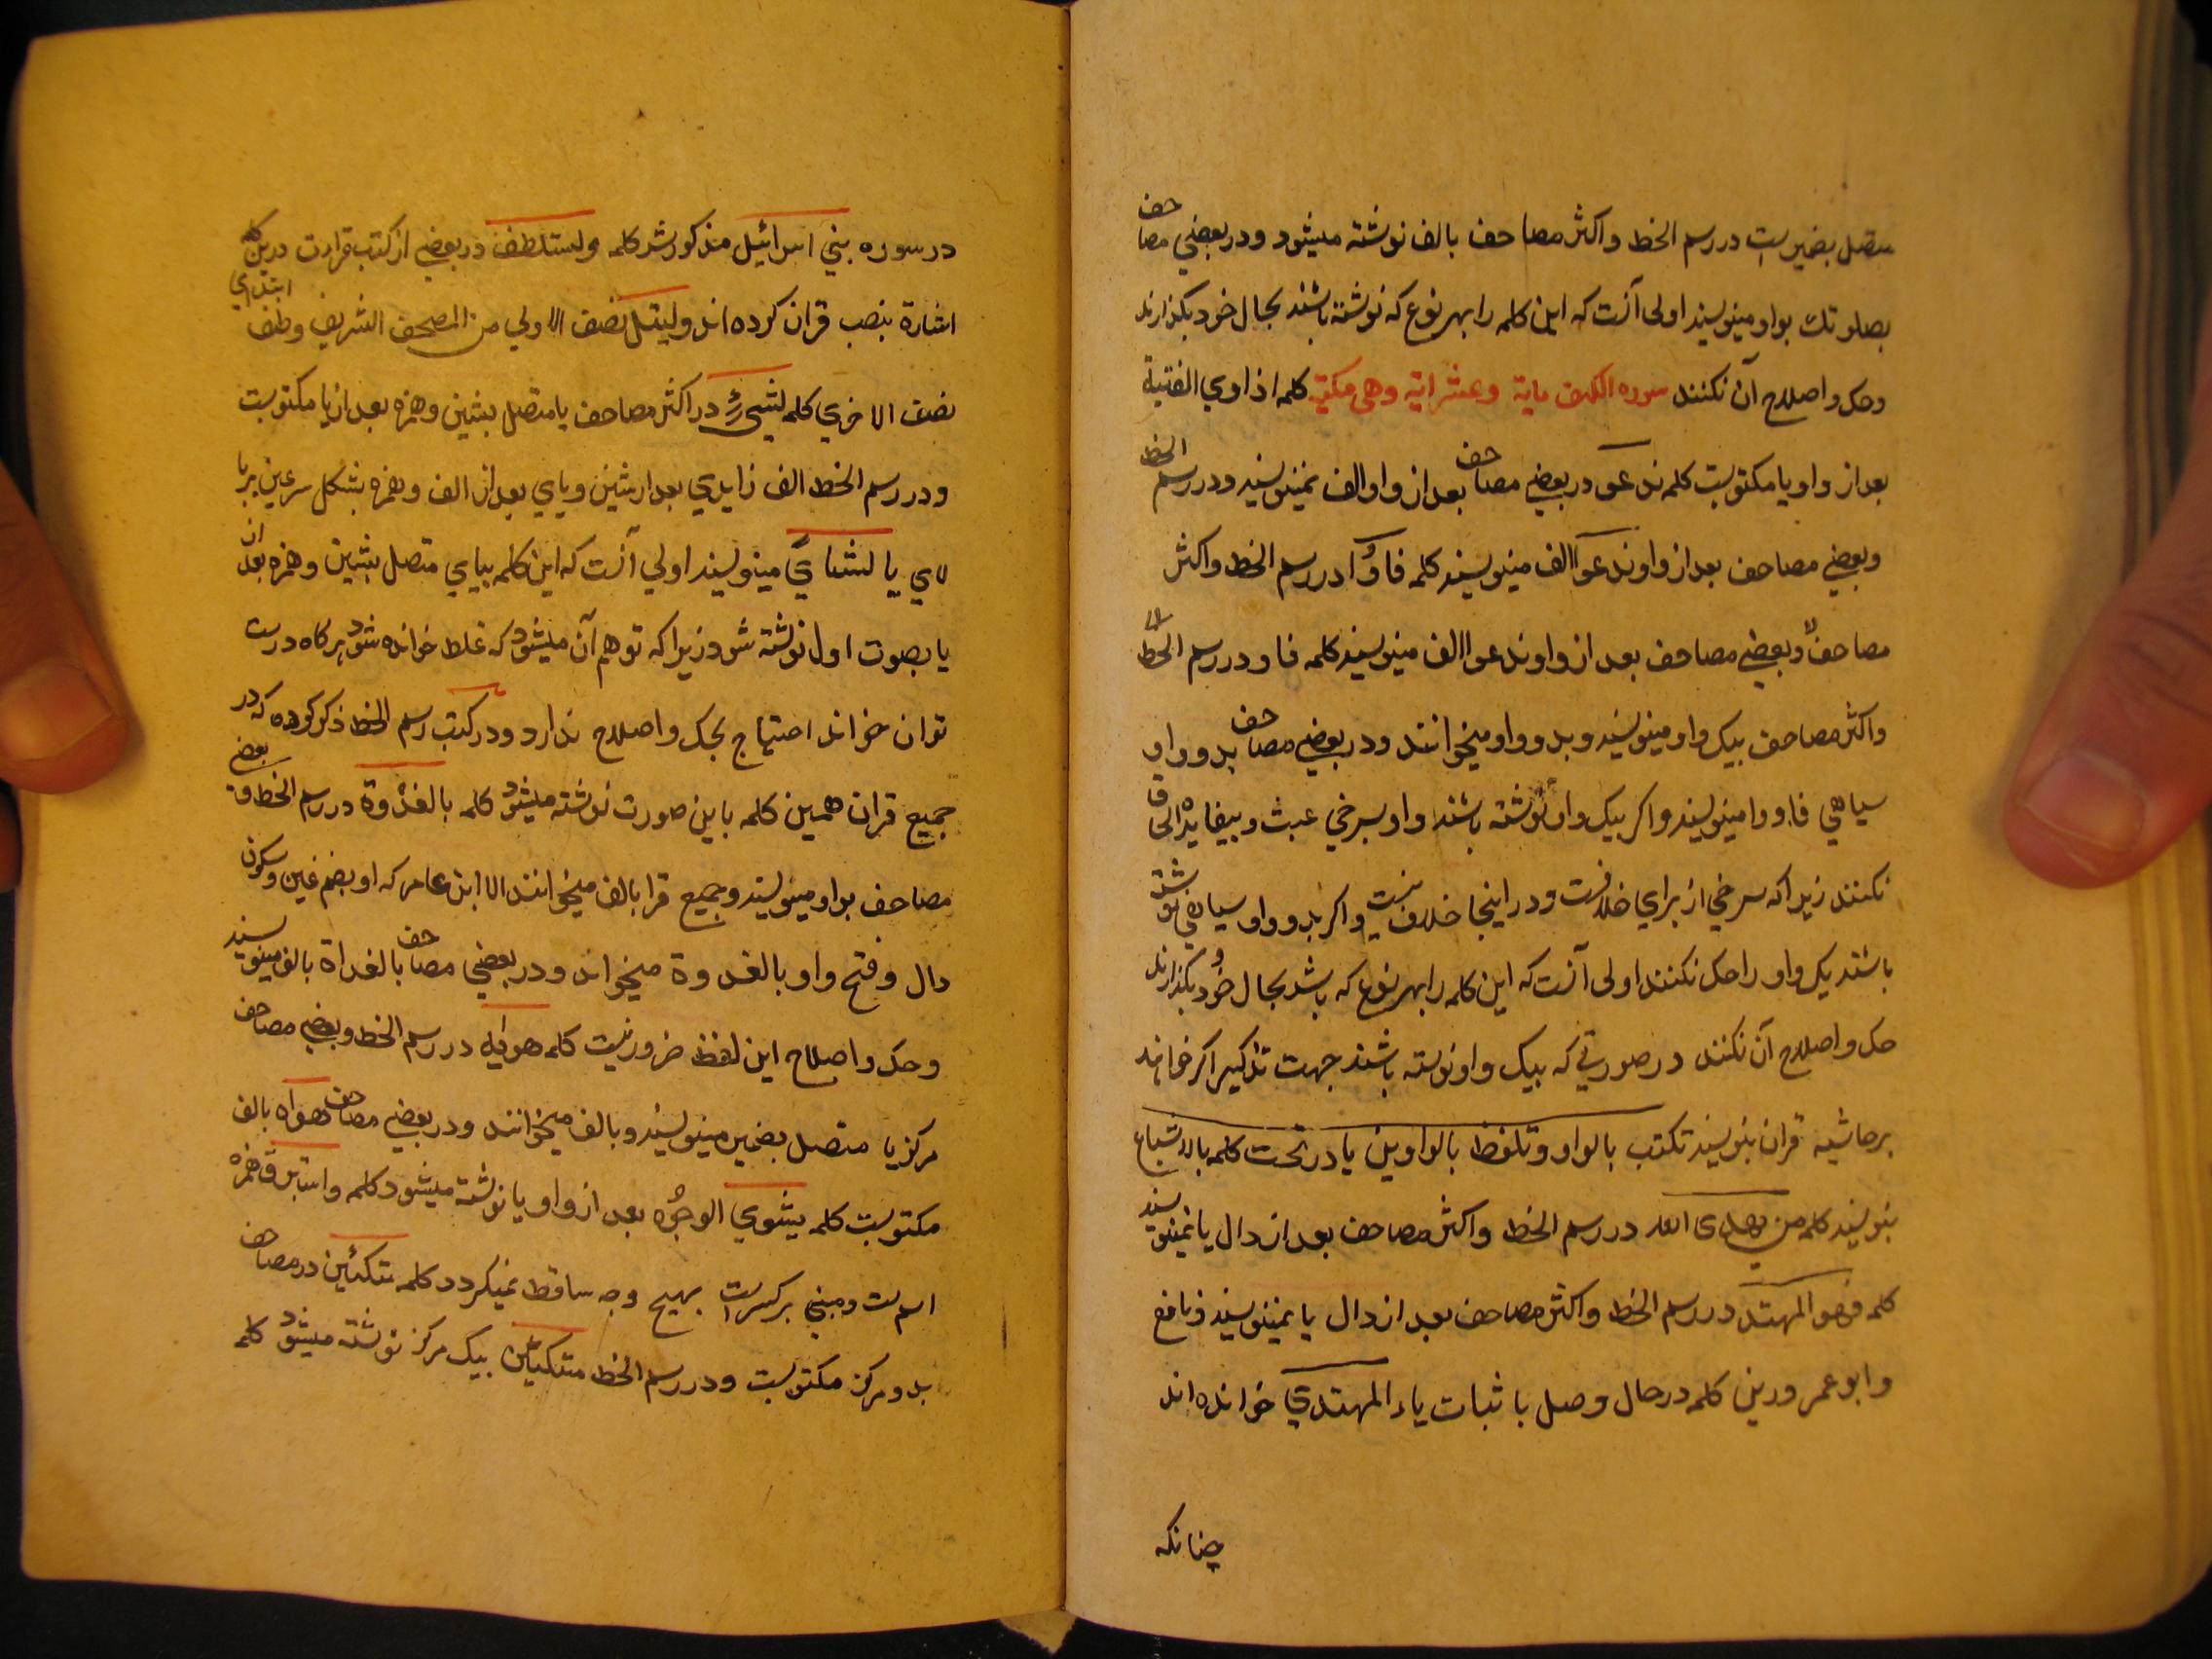 متصل بضمیرست در رسم الخط و اکثر مصاحف بالف نوشته میشود و در بعضی مصاحف
بصلوتک بواو مینویسند اولی آنست که این کلمه را بهر نوع که نوشته باشند بحال خود بکذارند
و حک و اصلاح آن نکنند سوره الکهف مایة و عشر ایة و هی مکیة کلمه اذ اوی الفتیة
بعد از واو یا مکتوبست کلمه ندعو در بعضی مصاحف بعد از واو الف نمینویسند و در رسم الخط
و بعضی مصاحف بعد از واو ندعوا الف مینویسند کلمه فاوُا در رسم الخط و اکثر
مصاحف و بعضی مصاحف بعد از واو ندعوا الف مینویسند کلمه فاو در رسم الخط
و اکثر مصاحف بیک واو مینویسند و بدو واو میخوانند و در بعضی مصاحف بدو واو
سیاهی فاووا مینویسند و اکر بیک واو نوشته باشند واو بسرخی عبث و بیفایده الحاق
نکنند زیرا که سرخی از برای خلافست و در اینجا خلاف نیست و اکر بدو واو سیاهی نوشته
باشند یک واو را حک نکنند اولی آنست که این کلمه را بهر نوع که باشد بحال خود بکذارند و
حک و اصلاح آن نکنند در صورتی که بیک واو نوشته باشند جهت تذکیر اکر خواهند
بر حاشیه قران بنویسند تکتب بالواو و تلفظ بالواوین یا در تحت کلمه بالاشباع
بنویسند کلمه من یهدی الله در رسم الخط و اکثر مصاحف بعد از دال یا نمینویسند
کلمه فهو المهتد در رسم الخط و اکثر مصاحف بعد از دال یا نمینویسند و نافع
و ابو عمرو درین کلمه در حال وصل باثبات یاء المهتدی خوانده اند
چنانکه
در سوره بنی اسرائیل مذکور شد کلمه ولیتلطف در بعضی از کتب قراءت درین کلمه
اشارة بنصب قران کرده اند ولیتل نصف الاولی من المصحف الشریف و طف ابتدای
نصف الاخری کلمه لشیء در اکثر مصاحف یا متصل بشین و همزه بعد از یا مکتوبست
و در رسم الخط الف زایدی بعد از شین و یای بعد از الف و همزه بشکل سر عین بر یا
لای یا لشای مینویسند اولی آنست که این کلمه بیای متصل بشین و همزه بعد از
یا بصوت اول نوشته شود زیرا که توهم آن میشود که غلط خوانده شود هرکاه درست
توان خواند احتیاج بحک و اصلاح ندارد و در کتب رسم الخط ذکر کرده که در
جمیع قران همین کلمه باین صورت نوشته میشود کلمه بالغدوة در رسم الخط و بعضی
مصاحف بواو مینویسند و جمیع قرا بالف میخوانند الا ابن عامر که او بضم غین و سکون
دال و فتح واو بالغدوة میخواند و در بعضی مصاحف بالغداة بالف مینویسند
و حک و اصلاح این لفظ ضرور نیست کلمه هویه در رسم الخط و بعضی مصاحف
مرکز یا متصل بضمیر مینویسند و بالف میخوانند و در بعضی مصاحف هواه بالف
مکتوبست کلمه یشوی الوجُوه بعد از واو یا نوشته میشود کلمه و استبرق همزه
اسمست و مبنی بر کسرست بهیچ وجه ساقط نمیکردد کلمه متکئین در مصاحف
بدو مرکز مکتوبست و در رسم الخط متکیٔین بیک مرکز نوشته میشود کلمه